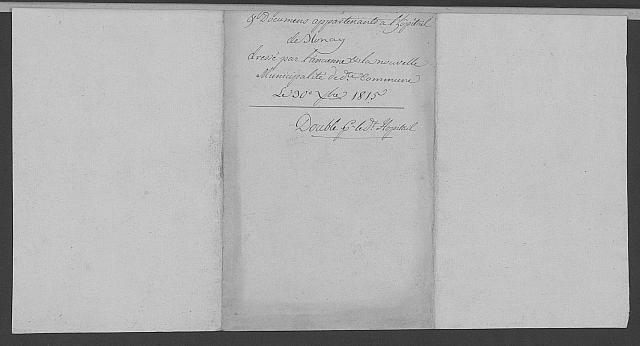 & Documens appartenants a l'hôpital
de
dressé par l'ancienne & la nouvelle
Municipalité de dte Commune
Le 30e Xbre 1815
Double pr. le dt. Hôpital